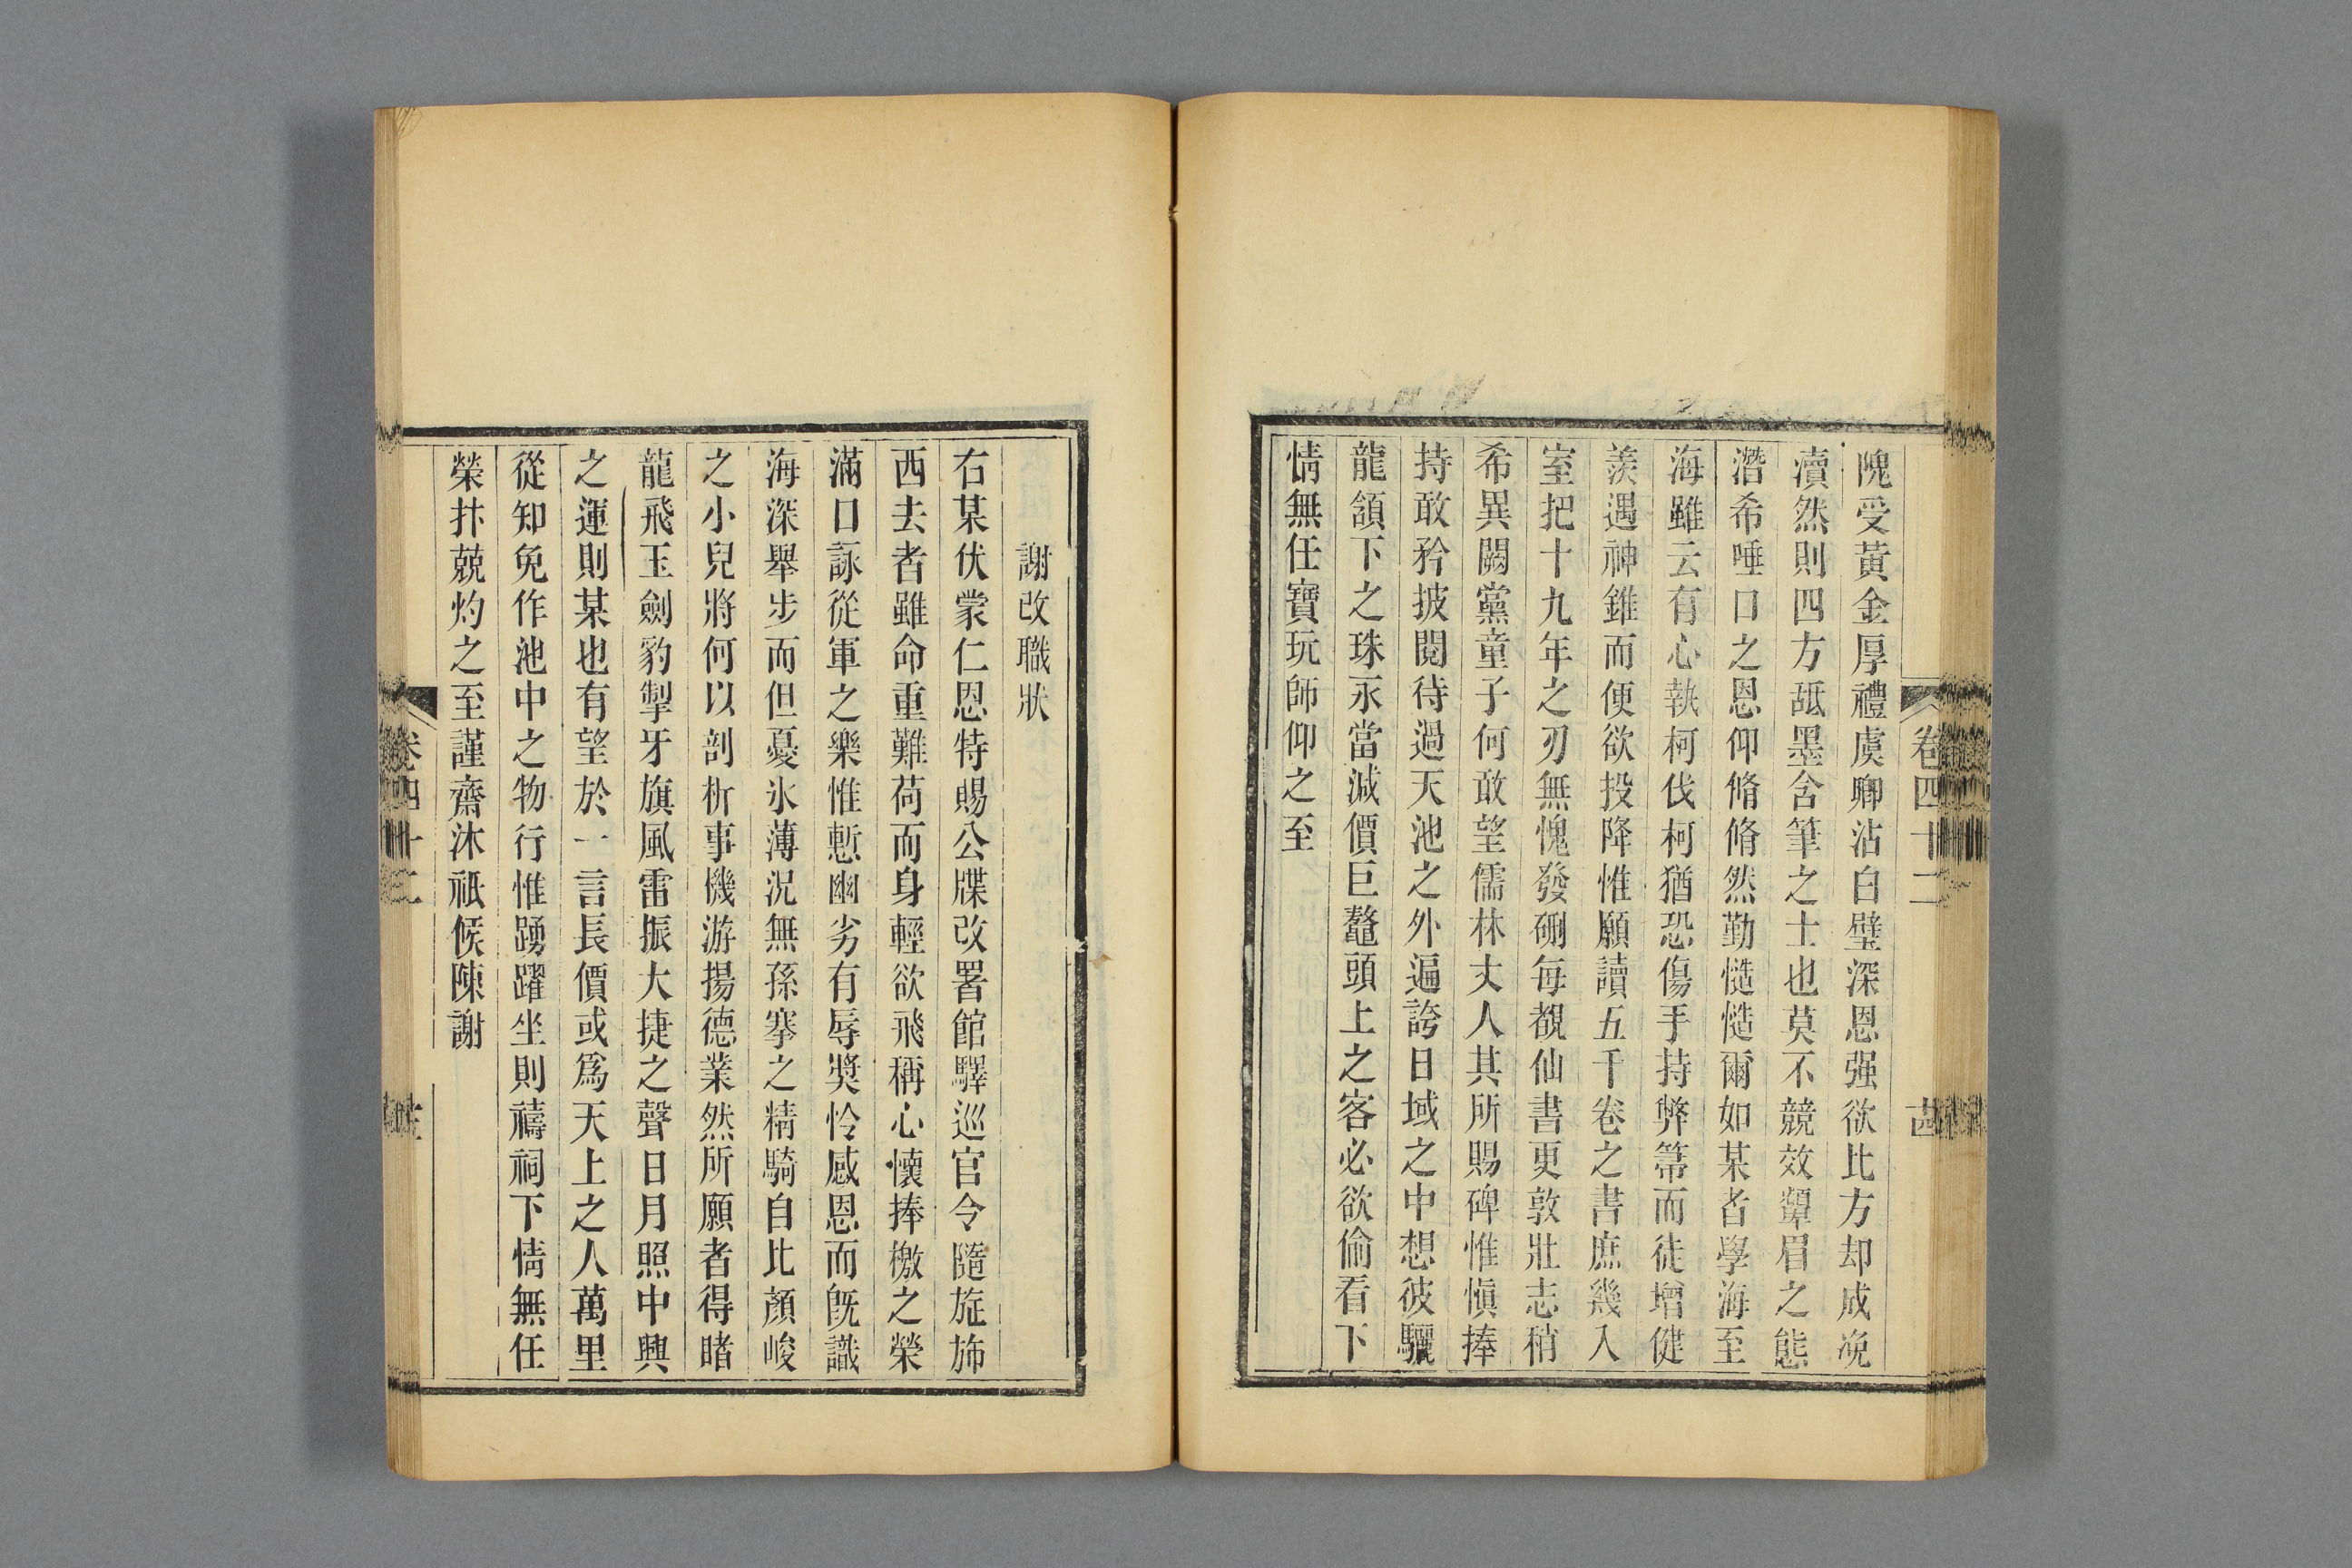 卷四十二
隗受黃金厚禮虞卿沾白璧深恩强欲比方却成浼
瀆然則四方䑛墨含筆之士也莫不競效顰眉之態
潛希唾口之恩仰脩脩然勤慥慥爾如某者學海至
海雖云有心執柯伐柯猶恐傷手持弊箒而徒增健
羨遇神錐而便欲投降惟願讀五千卷之書庶幾入
室把十九年之刃無愧發硎每覩仙書更敦壯志稍
希異闕黨童子何敢望儒林丈人其所賜碑惟愼捧
持敢矜披閱待過天池之外遍誇日域之中想彼驪
龍頷下之珠永當減價巨鼇頭上之客必欲偷看下
情無任寶玩師仰之至
謝改職狀
右某伏蒙仁恩特賜公牒改署館驛巡官令隨旌斾
西去者雖命重難荷而身輕欲飛稱心懷捧檄之榮
滿口詠從軍之樂惟慙幽劣有辱奬怜感恩而旣識
海深舉步而但憂氷薄況無孫搴之精騎自比顏峻
之小兒將何以剖析事機游揚德業然所願者得睹
龍飛玉劍豹掣牙旗風雷振大捷之聲日月照中興
之運則某也有望於一言長價或爲天上之人萬里
從知免作池中之物行惟踴躍坐則禱祠下情無任
榮抃兢灼之至謹齋沐祇候陳謝
卷四十二